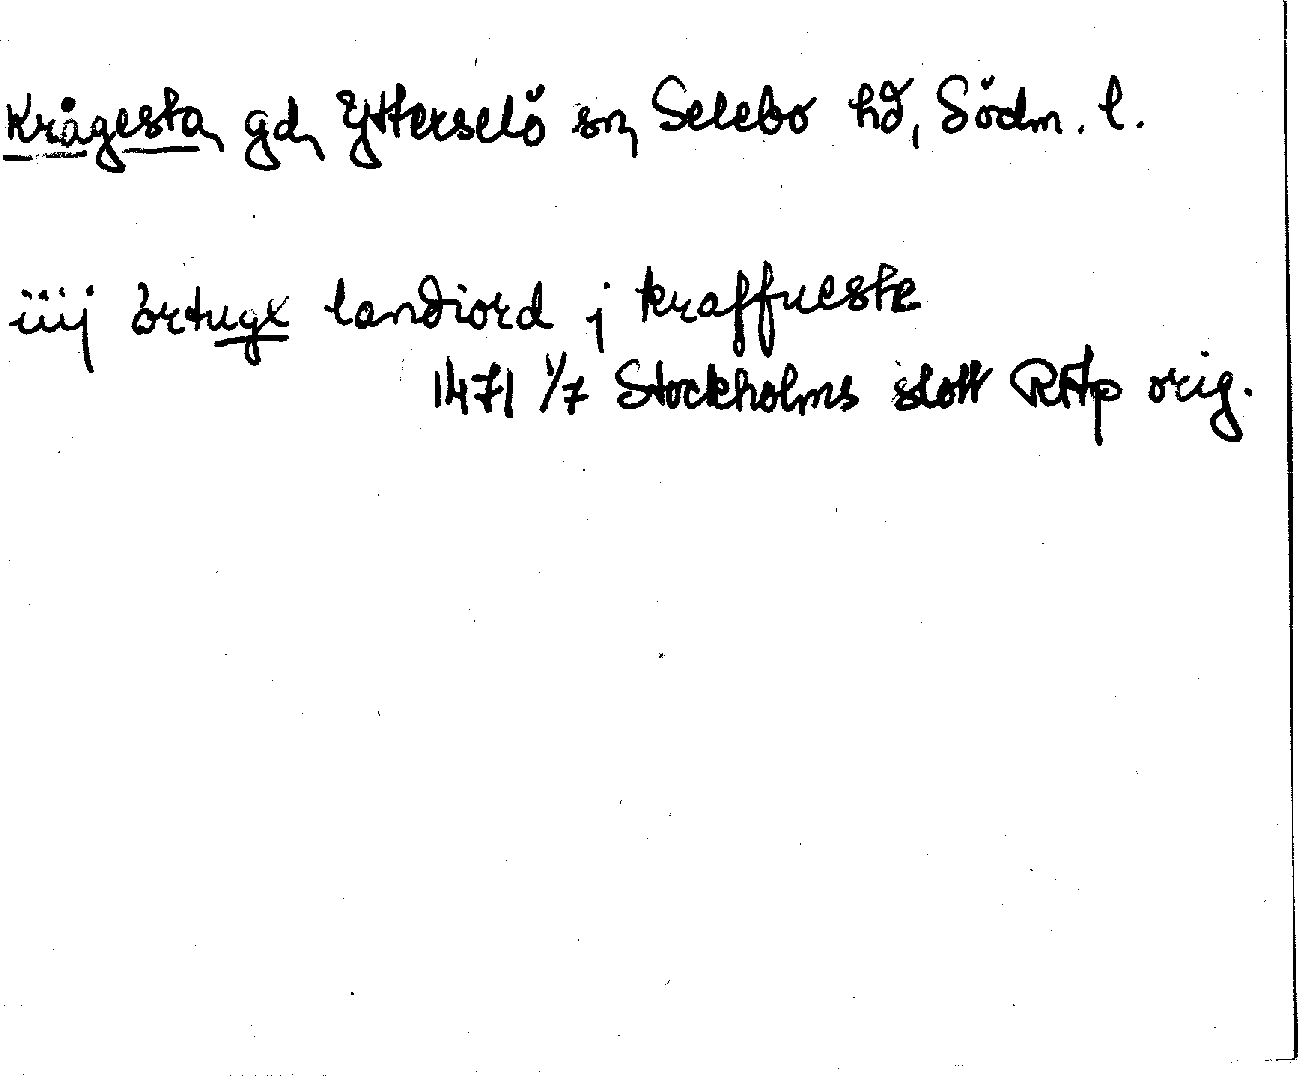 Krågesta, gd, Ytterselö sn, Selebo hd, Södm. l.
iiij örtugx landiord j kraffueste
1471 1/7 Stockholms slott RAp orig.